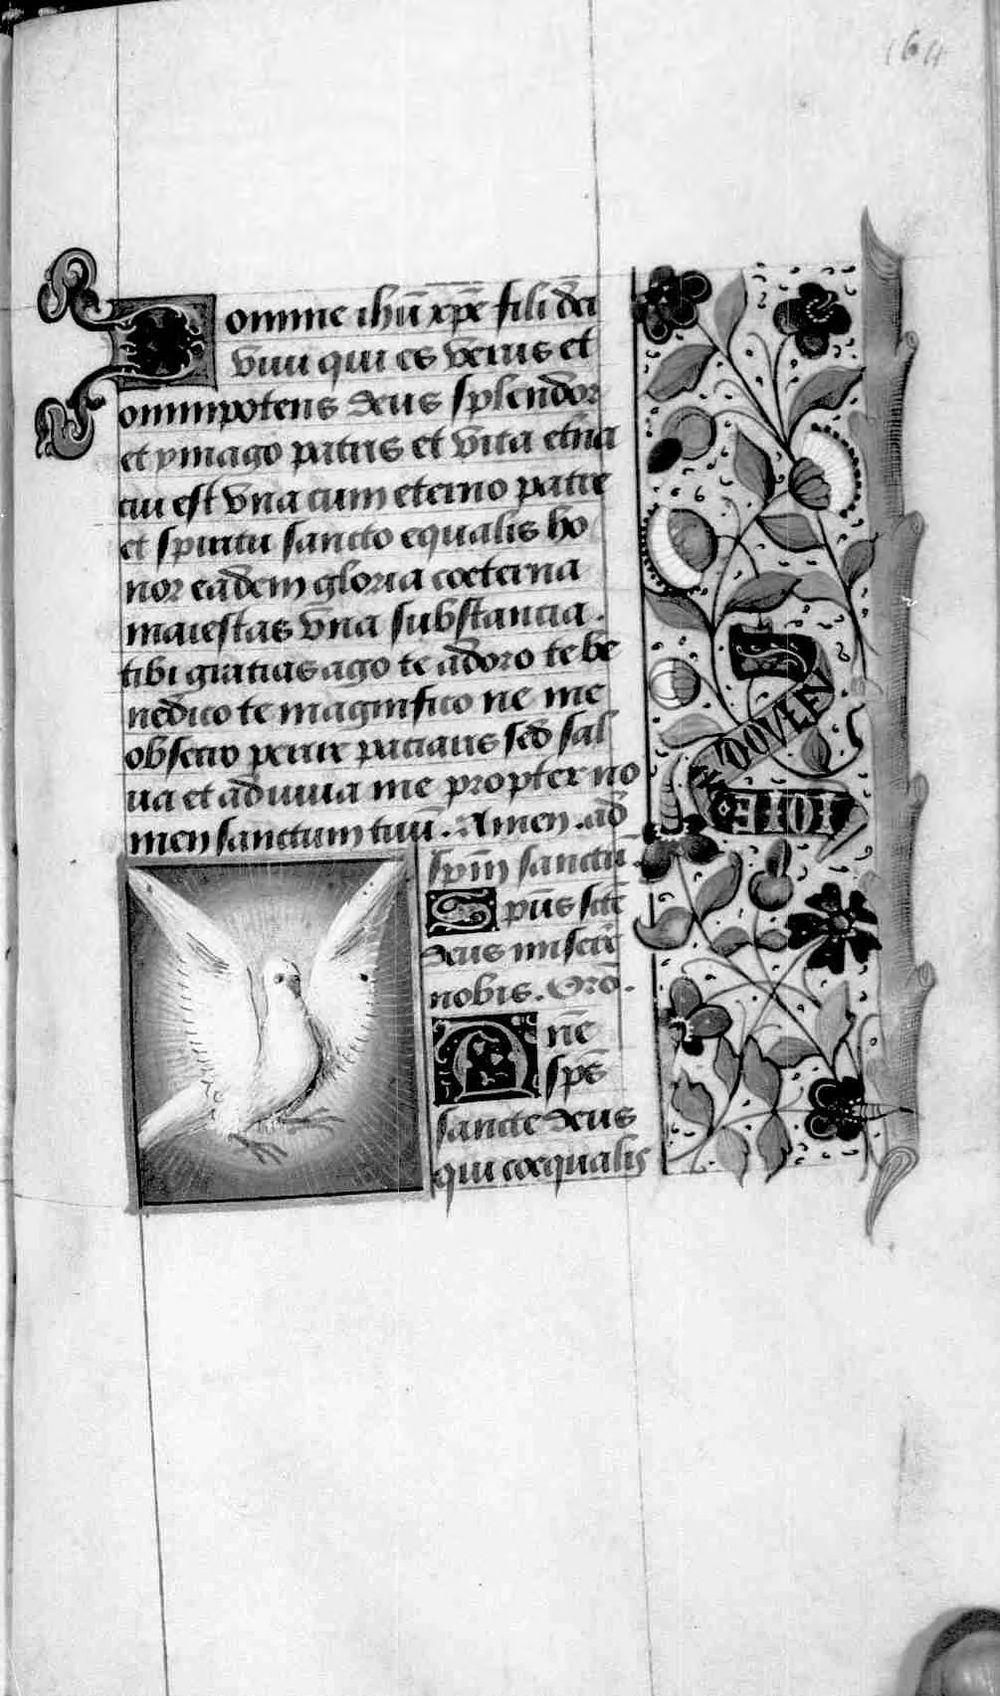 164
Domine ihū xp̄e fili dei
viui qui es verus et
omnipotens deus splendor
et ymago patris et vita etn̄a
cui est vna cum eterno patre
et spiritu sancto equalis ho
nor eadem gloria coeterna
maiestas vna substancia.
tibi gratias ago te adoro te be
nedico te magnifico ne me
obsecro perire paciaris sed sal
ua et adiuua me propter no
men sanctum tuū. Amen. ad
sp̄m sanctū.
Sp̄us sct̄e
deus miserē
nobis. Orō.
Dn̄e
sp̄s
sancte deus
qui coequalis
IOIE